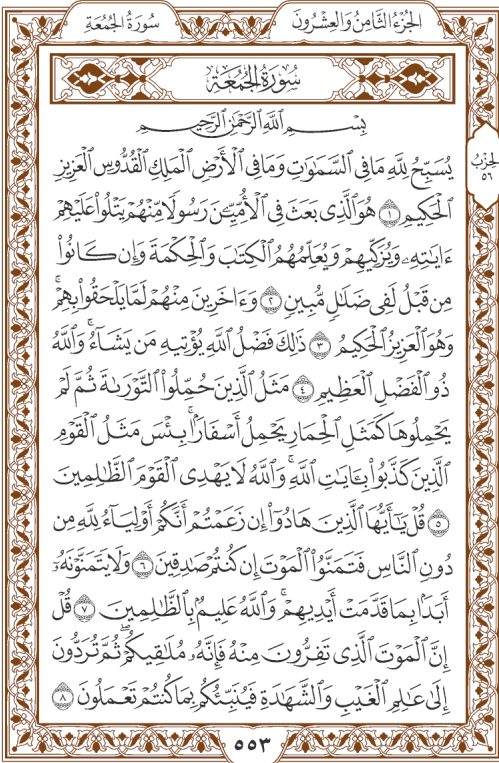 الجُزْءُ الثَّامِنُ وَالعِشْرُونَ
سُورَةُ الجُمُعَةِ
سُورَةُ الجُمُعَةِ
بِسْمِ ٱللَّهِ ٱلرَّحْمَٰنِ ٱلرَّحِيمِ
يُسَبِّحُ لِلَّهِ مَا فِي ٱلسَّمَٰوَٰتِ وَمَا فِي ٱلْأَرْضِ ٱلْمَلِكِ ٱلْقُدُّوسِ ٱلْعَزِيزِ
ٱلْحَكِيمِ ١ هُوَ ٱلَّذِي بَعَثَ فِي ٱلْأُمِّيِّـۧنَ رَسُولًا مِّنْهُمْ يَتْلُوا۟ عَلَيْهِمْ
ءَايَٰتِهِۦ وَيُزَكِّيهِمْ وَيُعَلِّمُهُمُ ٱلْكِتَٰبَ وَٱلْحِكْمَةَ وَإِن كَانُوا۟
مِن قَبْلُ لَفِي ضَلَٰلٍ مُّبِينٍ ٢ وَءَاخَرِينَ مِنْهُمْ لَمَّا يَلْحَقُوا۟ بِهِمْ ۚ
وَهُوَ ٱلْعَزِيزُ ٱلْحَكِيمُ ٣ ذَٰلِكَ فَضْلُ ٱللَّهِ يُؤْتِيهِ مَن يَشَآءُ ۚ وَٱللَّهُ
ذُو ٱلْفَضْلِ ٱلْعَظِيمِ ٤ مَثَلُ ٱلَّذِينَ حُمِّلُوا۟ ٱلتَّوْرَىٰةَ ثُمَّ لَمْ
يَحْمِلُوهَا كَمَثَلِ ٱلْحِمَارِ يَحْمِلُ أَسْفَارًۢا ۚ بِئْسَ مَثَلُ ٱلْقَوْمِ
ٱلَّذِينَ كَذَّبُوا۟ بِـَٔايَٰتِ ٱللَّهِ ۚ وَٱللَّهُ لَا يَهْدِي ٱلْقَوْمَ ٱلظَّٰلِمِينَ
٥ قُلْ يَٰٓأَيُّهَا ٱلَّذِينَ هَادُوٓا۟ إِن زَعَمْتُمْ أَنَّكُمْ أَوْلِيَآءُ لِلَّهِ مِن
دُونِ ٱلنَّاسِ فَتَمَنَّوُا۟ ٱلْمَوْتَ إِن كُنتُمْ صَٰدِقِينَ ٦ وَلَا يَتَمَنَّوْنَهُۥٓ
أَبَدًۢا بِمَا قَدَّمَتْ أَيْدِيهِمْ ۚ وَٱللَّهُ عَلِيمٌۢ بِٱلظَّٰلِمِينَ ٧ قُلْ
إِنَّ ٱلْمَوْتَ ٱلَّذِي تَفِرُّونَ مِنْهُ فَإِنَّهُۥ مُلَٰقِيكُمْ ۖ ثُمَّ تُرَدُّونَ
إِلَىٰ عَٰلِمِ ٱلْغَيْبِ وَٱلشَّهَٰدَةِ فَيُنَبِّئُكُم بِمَا كُنتُمْ تَعْمَلُونَ ٨
الحِزْبُ
٥٦
٥٥٣